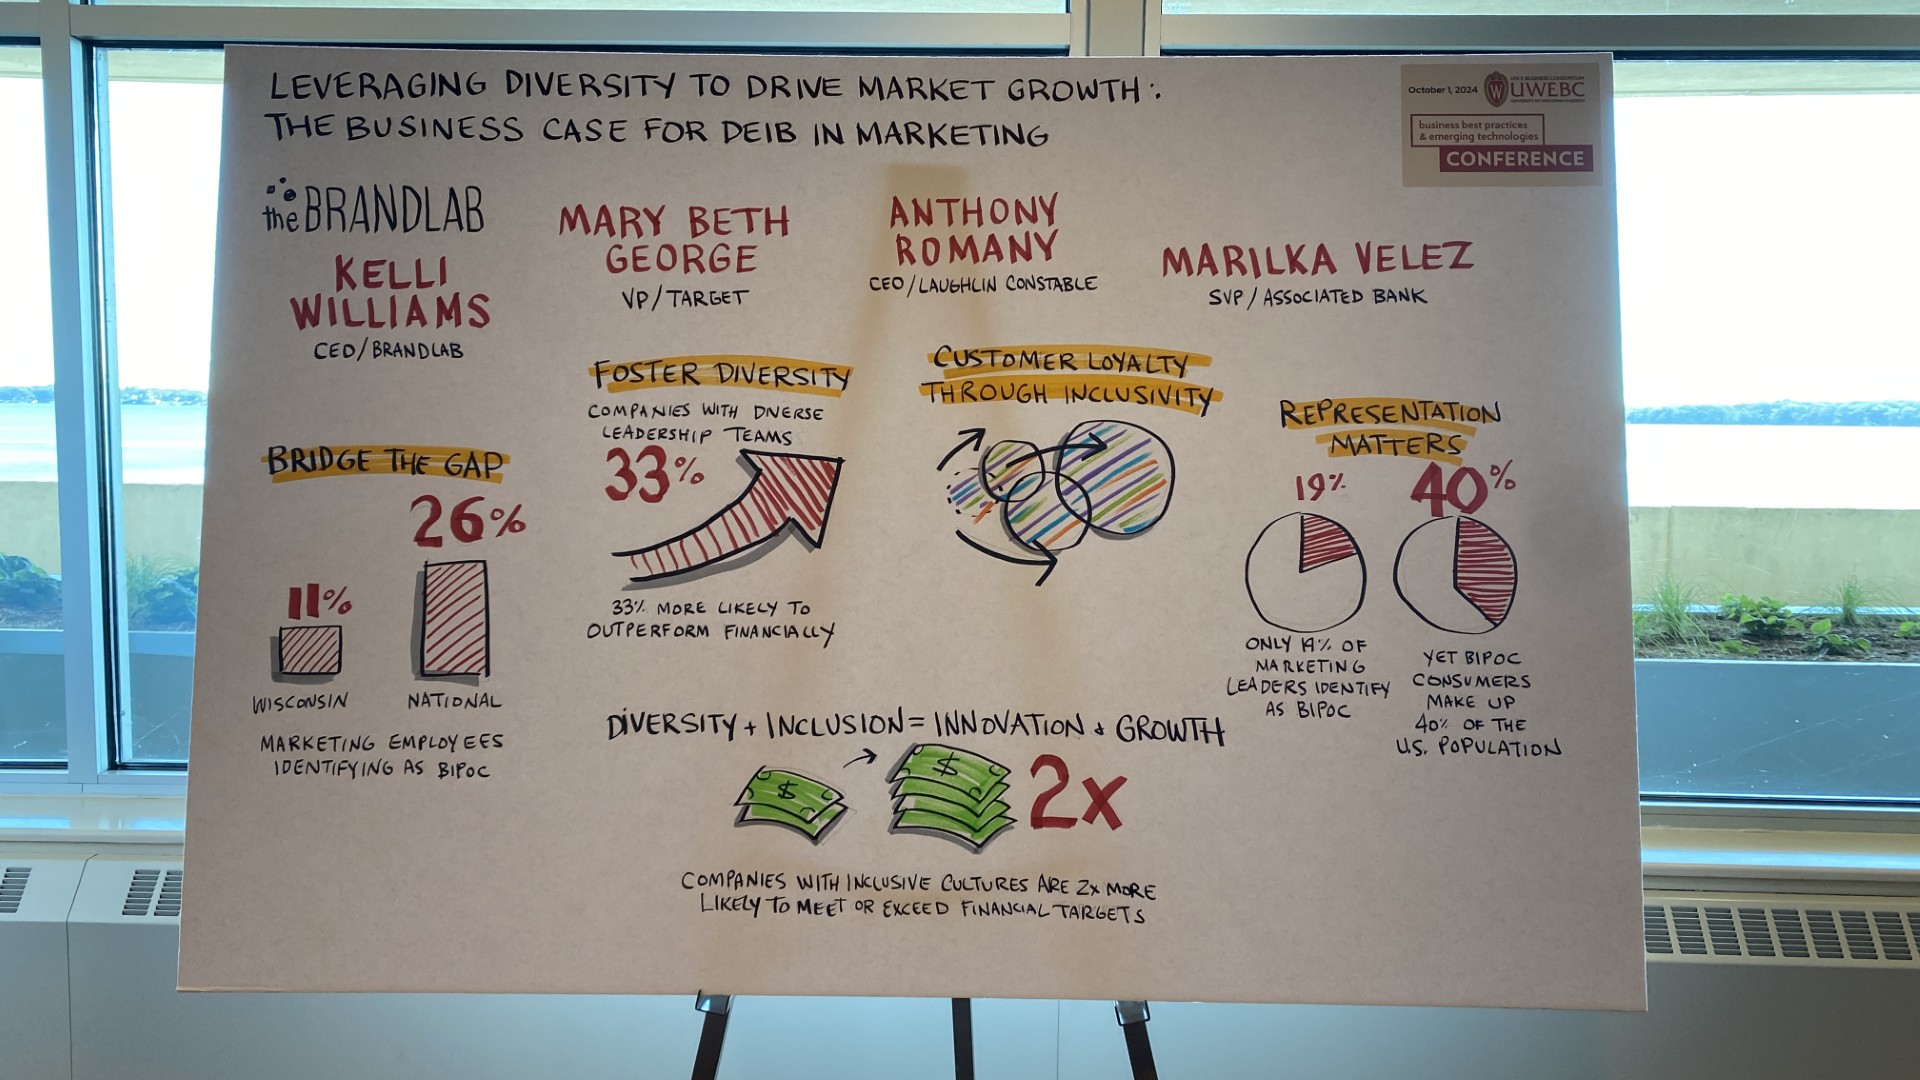 LEVERAGING DIVERSITY TO DRIVE MARKET GROWTH:
THE BUSINESS CASE FOR DEIB IN MARKETING
October 1, 2024
UWEBC
business best practices
& emerging technologies
CONFERENCE
the BRANDLAB
KELLI
WILLIAMS
CEO/BRANDLAB
MARY BETH
GEORGE
VP/TARGET
ANTHONY
ROMANY
CEO/LAUGHLIN CONSTABLE
MARILKA VELEZ
SVP/ASSOCIATED BANK
BRIDGE THE GAP
26%
11%
WISCONSIN
NATIONAL
MARKETING EMPLOYEES
IDENTIFYING AS BIPOC
FOSTER DIVERSITY
COMPANIES WITH DIVERSE
LEADERSHIP TEAMS
33%
33% MORE LIKELY TO
OUTPERFORM FINANCIALLY
CUSTOMER LOYALTY
THROUGH INCLUSIVITY
REPRESENTATION
MATTERS
19%
40%
ONLY 19% OF
MARKETING
LEADERS IDENTIFY
AS BIPOC
YET BIPOC
CONSUMERS
MAKE UP
40% OF THE
U.S. POPULATION
DIVERSITY + INCLUSION = INNOVATION & GROWTH
$
$
2x
COMPANIES WITH INCLUSIVE CULTURES ARE 2x MORE
LIKELY TO MEET OR EXCEED FINANCIAL TARGETS